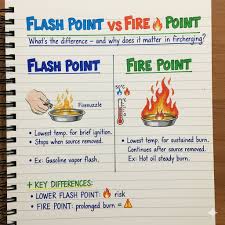 FLASH POINT VS FIRE POINT
What's the difference – and why does it matter in fircherging?
FLASH POINT
Fisruzzle
• Lowest temp. for brief ignition.
• Stops when source removed.
• Ex: Gasoline vapor flash.
FIRE POINT
50°C
• Lowest temp. for sustained burn.
Continues after source removed.
• Ex: Hot oil steady burn.
+ KEY DIFFERENCES:
• LOWER FLASH POINT: risk
• FIRE POINT: prolonged burn =